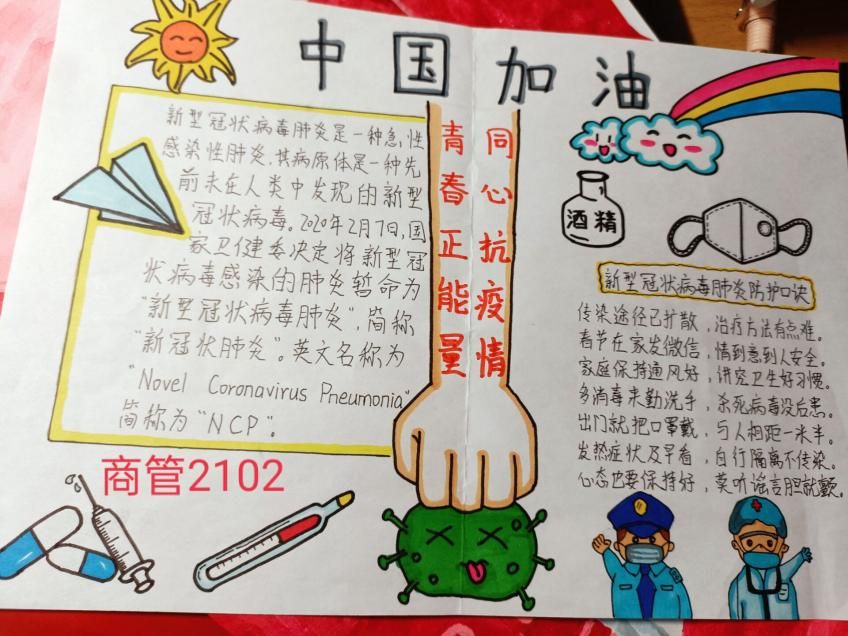 中国加油
新型冠状病毒肺炎是一种急性
感染性肺炎,其病原体是一种先
前未在人类中发现的新型
冠状病毒。2020年2月7日,国
家卫健委决定将新型冠
状病毒感染的肺炎暂命为
"新型冠状病毒肺炎",简称
"新冠状肺炎"。英文名称为
"Novel Coronavirus Pneumonia"
简称为"NCP"。
青春正能量
同心抗疫情
酒精
新型冠状病毒肺炎防护口诀
传染途径已扩散,治疗方法有点难。
春节在家发微信,情到意到人安全。
家庭保持通风好,讲究卫生好习惯。
多消毒来勤洗手,杀死病毒没后患。
出门就把口罩戴,与人相距一米半。
发热症状及早看,自行隔离不传染。
心态也要保持好,莫听谣言胆就颤。
商管2102